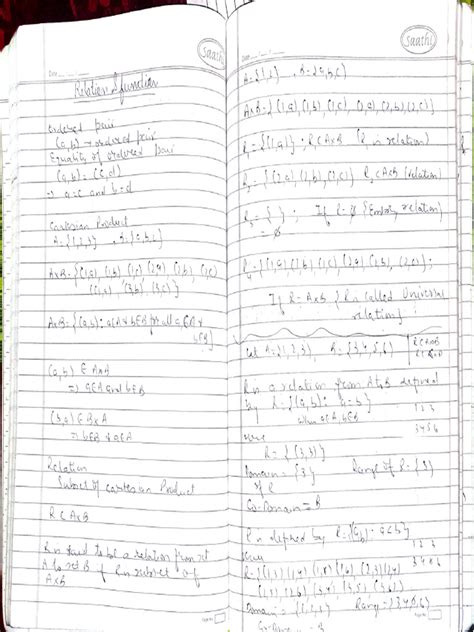 Saathi
Date
Relation & function
ordered pair
(a,b) → ordered pair
Equality of ordered pair
(a,b) = (c,d)
⇒ a=c and b=d
Cartesian Product
A×B = {(1,a) (1,b) (1,c) (2,a) (2,b) (2,c)
(3,a) (3,b) (3,c)}
A×B = {(a,b) : a∈A b∈B for all a∈A
b∈B}
(a,b) ∈ A×B
⇒ a∈A and b∈B
∈ B×A
⇒ b∈B a∈A
Relation
Subset of cartesian Product
R⊂A×B
R is said to be a relation from set
A to set B if R is subset of
A×B
Saathi
A={1,2} B={a,b,c}
A×B = {(1,a) (1,b) (1,c) (2,a) (2,b) (2,c)}
R₁ = {(1,a)} ; R⊂A×B (R is relation)
R₂ = {(2,a) (2,b) (2,c)} R₂⊂A×B (relation)
R₃ = { } ; If R=∅ {Empty relation}
= ∅
= {(1,a) (1,b) (1,c) (2,a) (2,b) (2,c)} ;
If R=A×B {R is called Universal
relation}
Let A={1,2,3}, B={3,4,5,6}
R⊂A×B
R is a relation from A to B defined
by R={(a,b) : a=b}
when a∈A b∈B
1 2 3
3 4 5 6
R={(3,3)}
Domain = {3} Range of R={3}
of R
Co-Domain = B
R is defined by R={(a,b) : a<b}
1 2 3
3 4 5 6
Domain = {1,2,3} Range = {3 4 5 6}